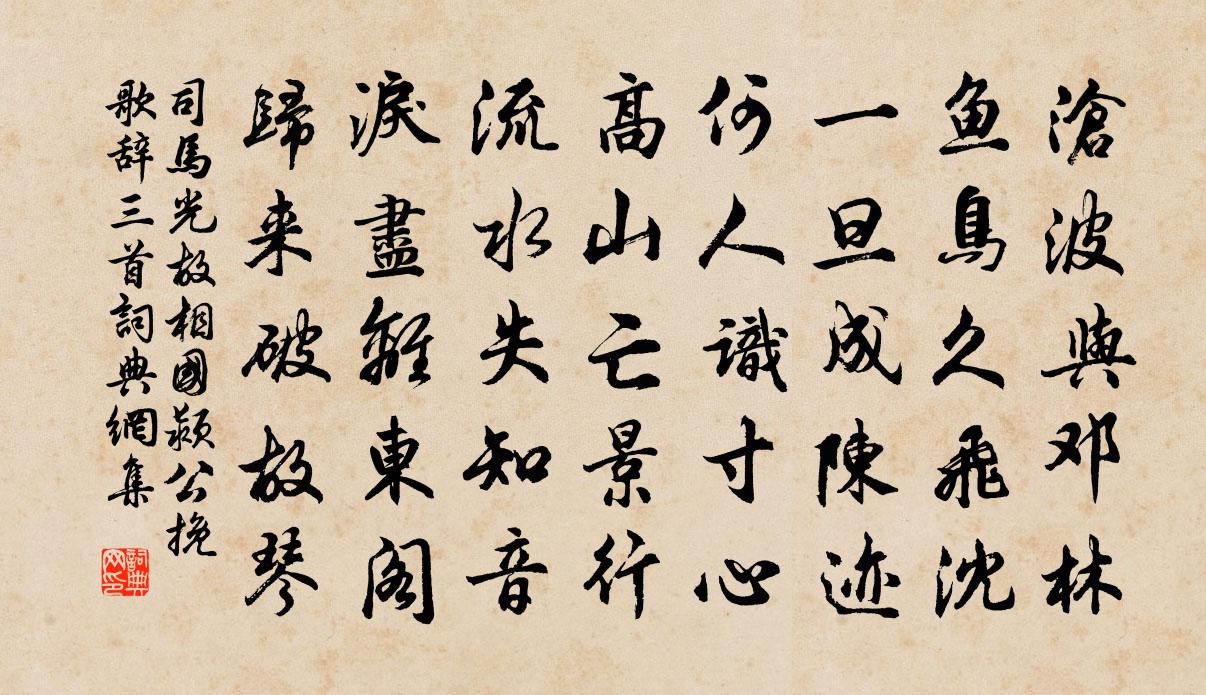 滄波與邓林
魚鳥久飛沈
一旦成陳迹
何人識寸心
高山亡景行
流水失知音
淚盡離東閣
歸来破故琴
司馬光故相國颍公挽
歌辞三首詞典網集
詞典网印